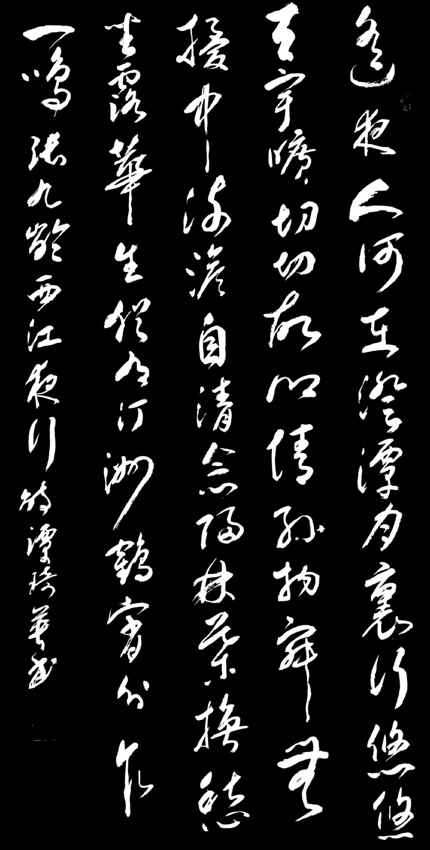 遙夜人何在澄潭月裏行悠悠
天宇曠切切故鄉情外物寂無
擾中流澹自清念歸林葉換愁
坐露華生猶有汀洲鶴宵分乍
一鳴 張九齡西江夜行詩 譚